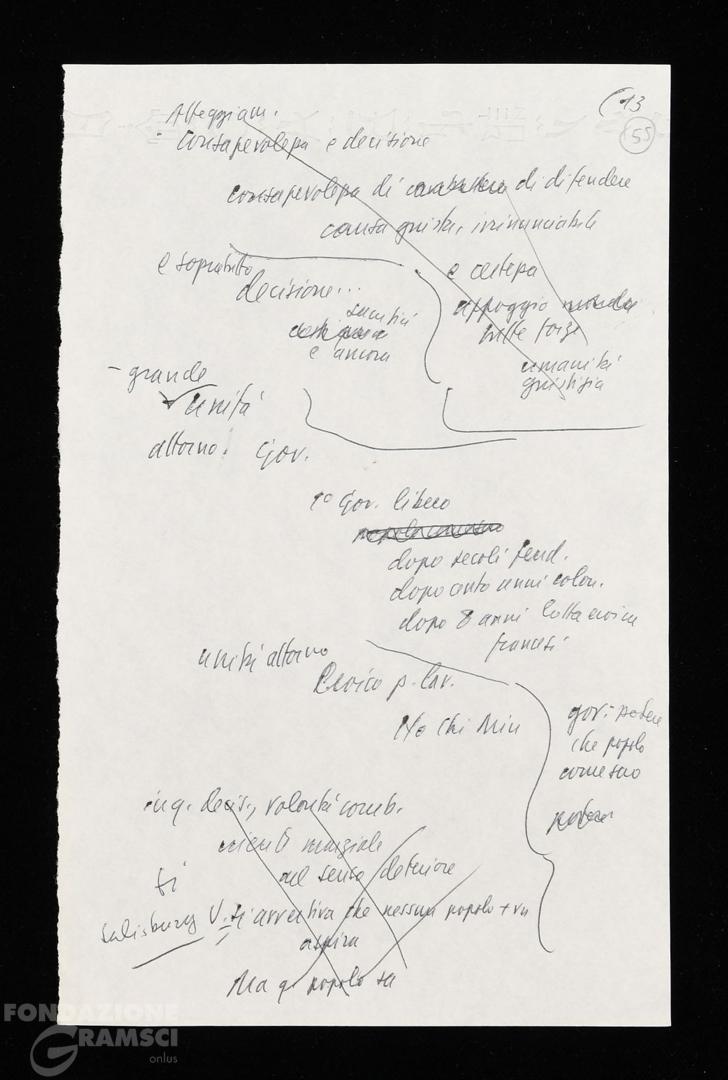 13
55
Atteggiam.
consapevolezza e decisione
consapevolezza di di difendere
causa giusta, irrinunciabile
e soprattutto
e certezza
decisione...
appoggio
tutte forze
sacrifici
e ancora
umanità
giustizia
- grande
unità
attorno Gov.
1° Gov. libero
dopo secoli feud.
dopo cento anni colon.
dopo 8 anni lotta eroica
francesi
unità attorno
Eroico p. lav.
Ho Chi Min
gov. potere
che popolo
come suo
potere
in q. decis., volontà comb.
niente marziale
nel senso deteriore
si
Salisbury V. si avvertiva che nessun popolo + vn
aspira
Ma q. popolo sa
FONDAZIONE
GRAMSCI
onlus